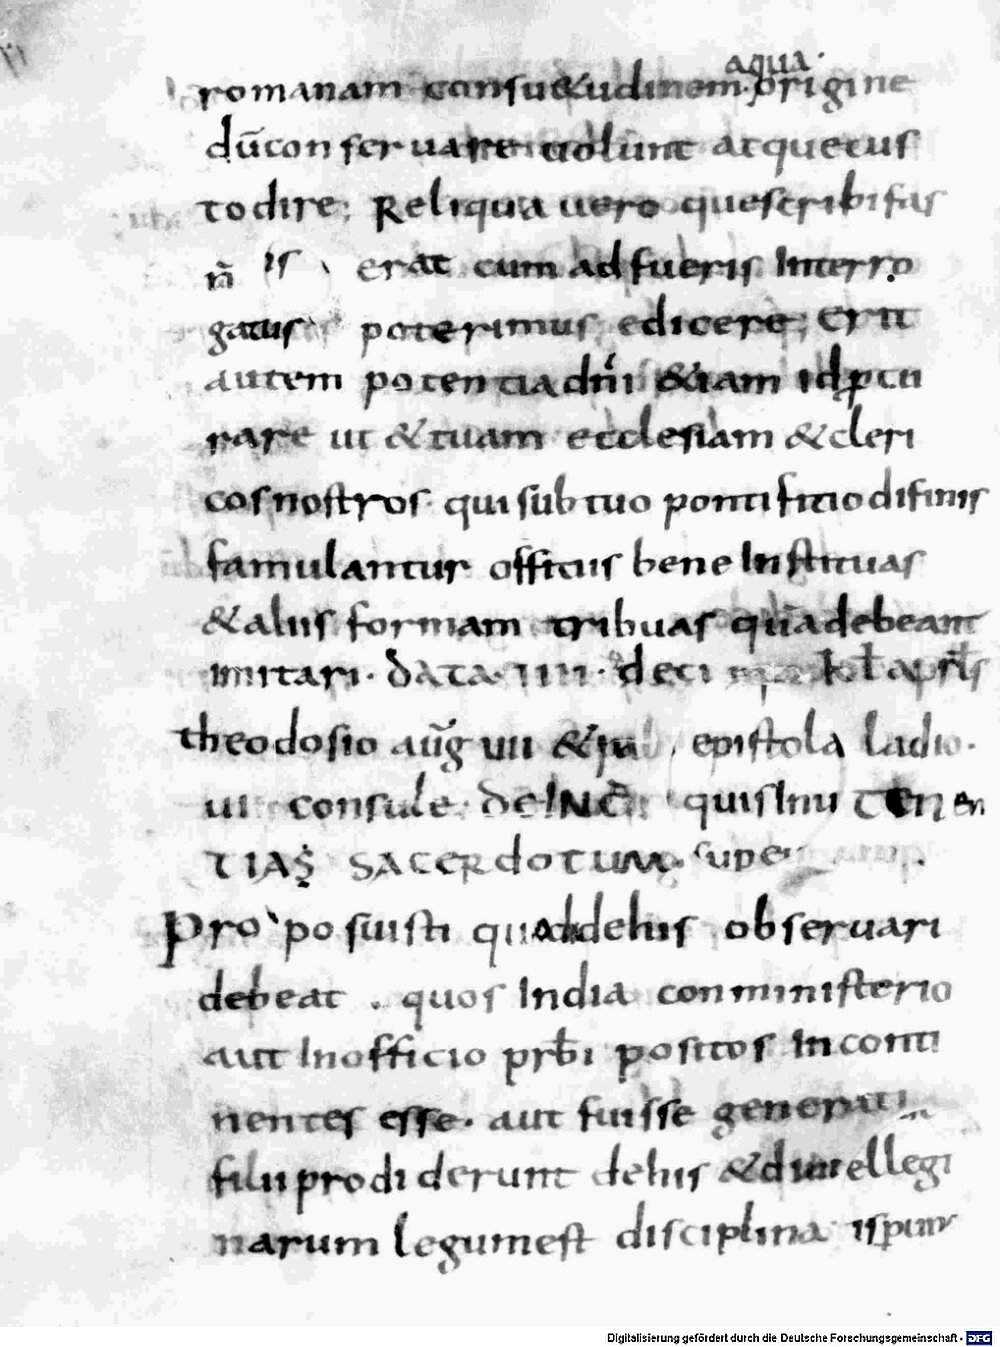 aqua·
romanam consu&udinem· origine
dūcon seruare uolunt atquecus
todire; Reliqua uero quescribifas
n̄ is erat cum adfueris Interro
gatus poterimus edicere; Erit
autem potentiadn̄i &iam idꝓcu
rare ut &tuam ecclesiam &cleri
cosnostros· qui subtuo pontificiodifinis
famulantur officiis bene Instituas
&aliis formam tribuas quādebeant
imitari· Data· IIII· deci kƚ apriƚs
theodosio aug̅ uii & epistola Iadio·
ui consule· DeINC̅ quisInu TEN en
TIAS SACERDOTUM· super
Pro posuisti quiddehiis obseruari
debeat · quos India conministerio
aut Inofficio prb̄i positos Inconti
nentes esse· aut fuisse generati
filii prodiderunt dehiis &diuellegi
narum legumest disciplina
Digitalisierung gefördert durch die Deutsche Forschungsgemeinschaft - DFG